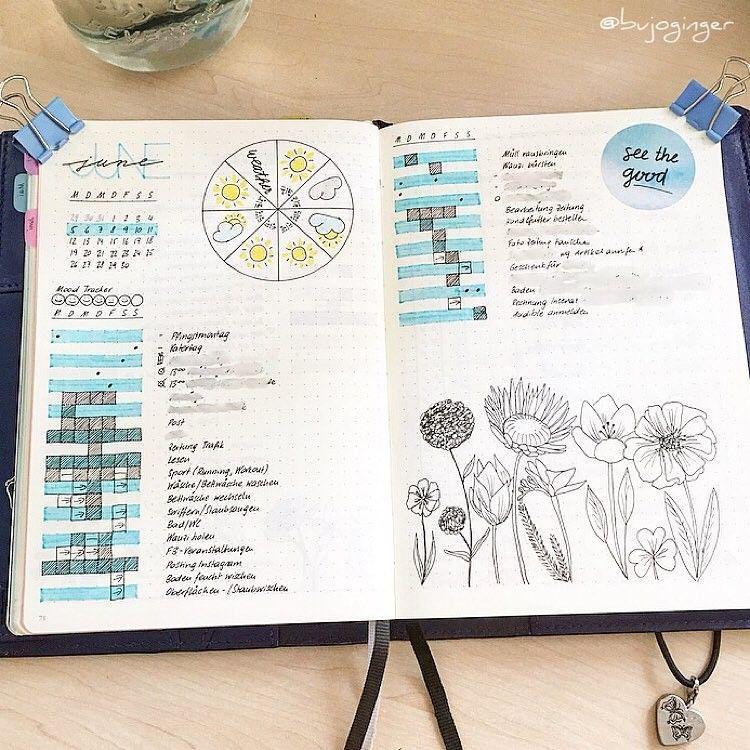 @bujoginger
JUNE
june
M D M D F S S
29 30 31 1 2 3 4
5 6 7 8 9 10 11
12 13 14 15 16 17 18
19 20 21 22 23 24 25
26 27 28 29 30
Mood Tracker
M D M D F S S
Pfingstmontag
Vatertag
13⁰⁰
13⁰⁰
Post
Zeitung Trafik
Lesen
Sport (Running, Workout)
Wäsche/Bettwäsche waschen
Bettwäsche wechseln
Swiffern/Staubsaugen
Bad/WC
Wauzi holen
FB-Veranstaltungen
Posting Instagram
Boden feucht wischen
Oberflächen-/Staubwischen
78
weather
M D M D F S S
Müll rausbringen
Wauzi bürsten
Bearbeitung Zeitung
Hundefutter bestellen
Foto Zeitung
Geschenk für
Baden
Rechnung Inserat
Audible anmelden
see the
good